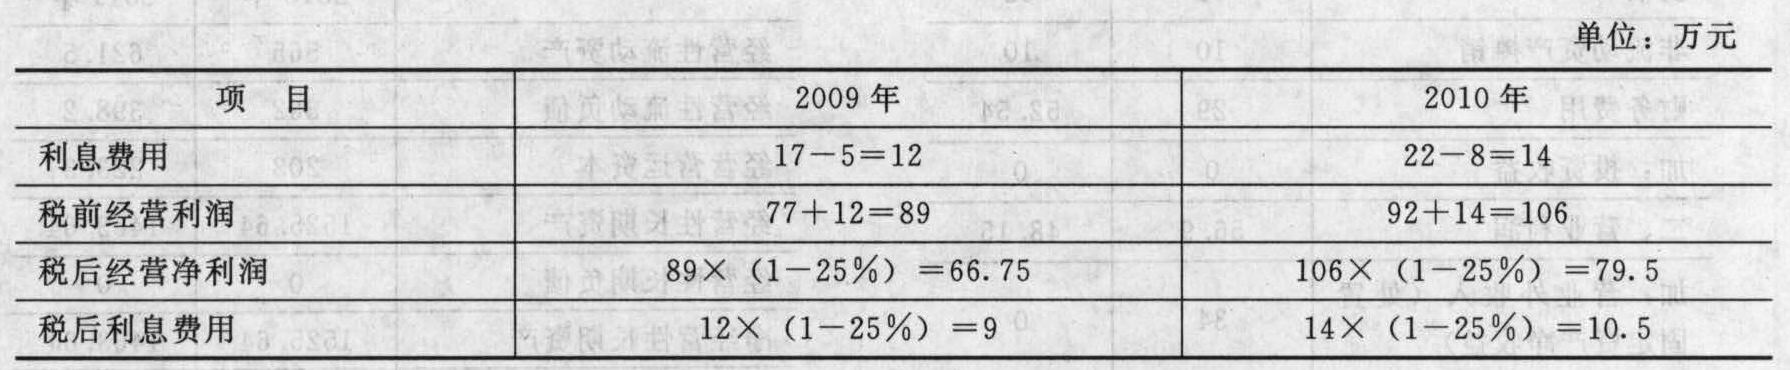 单位：万元
项 目 2009 年 2010 年
利息费用 17－5＝12 22－8＝14
税前经营利润 77＋12＝89 92＋14＝106
税后经营净利润 89×（1－25%）＝66.75 106×（1－25%）＝79.5
税后利息费用 12×（1－25%）＝9 14×（1－25%）＝10.5